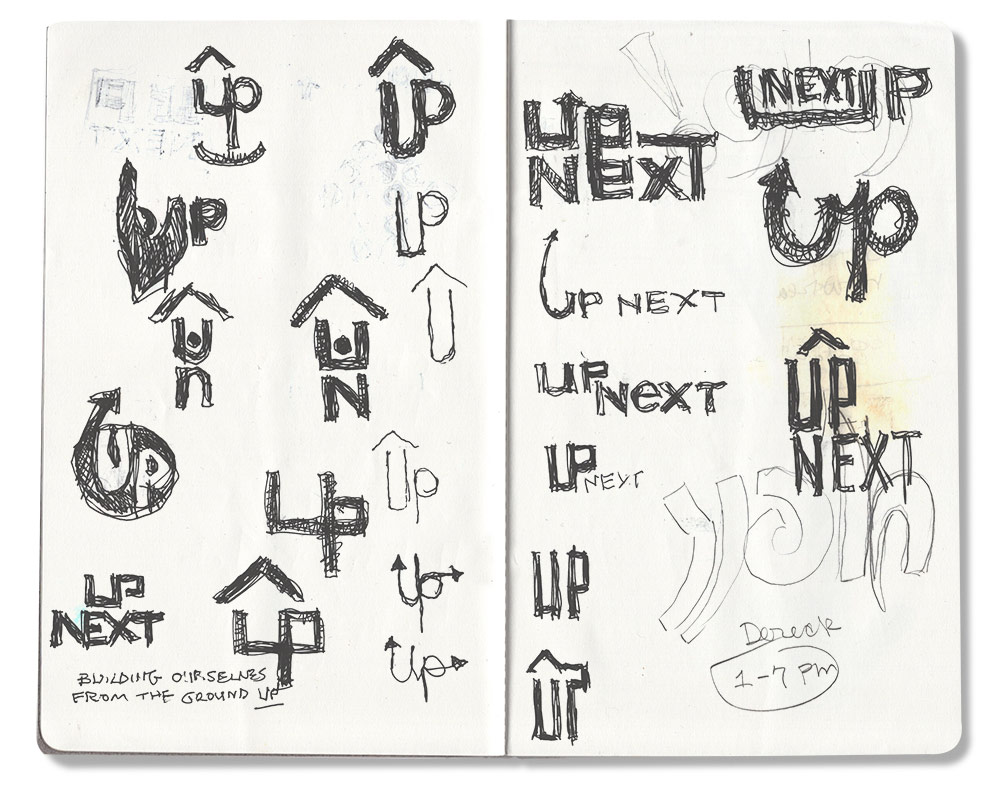 up
UP
UP
UP
Un
UN
UP
Up
up
Up
UP
NEXT
UP
Up
BUILDING OURSELVES
FROM THE GROUND UP
UP
NEXT
UNEXTUP
up
UP NEXT
UP
NEXT
UP NeXT
UP NEXT
UP
UP
Dereck
1-7 PM